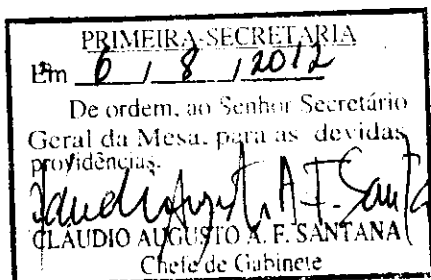 PRIMEIRA-SECRETARIA
Em 6 / 8 / 2012
De ordem, ao Senhor Secretário
Geral da Mesa, para as devidas
providências.
CLAUDIO AUGUSTO A. F. SANTANA
Chefe de Gabinete